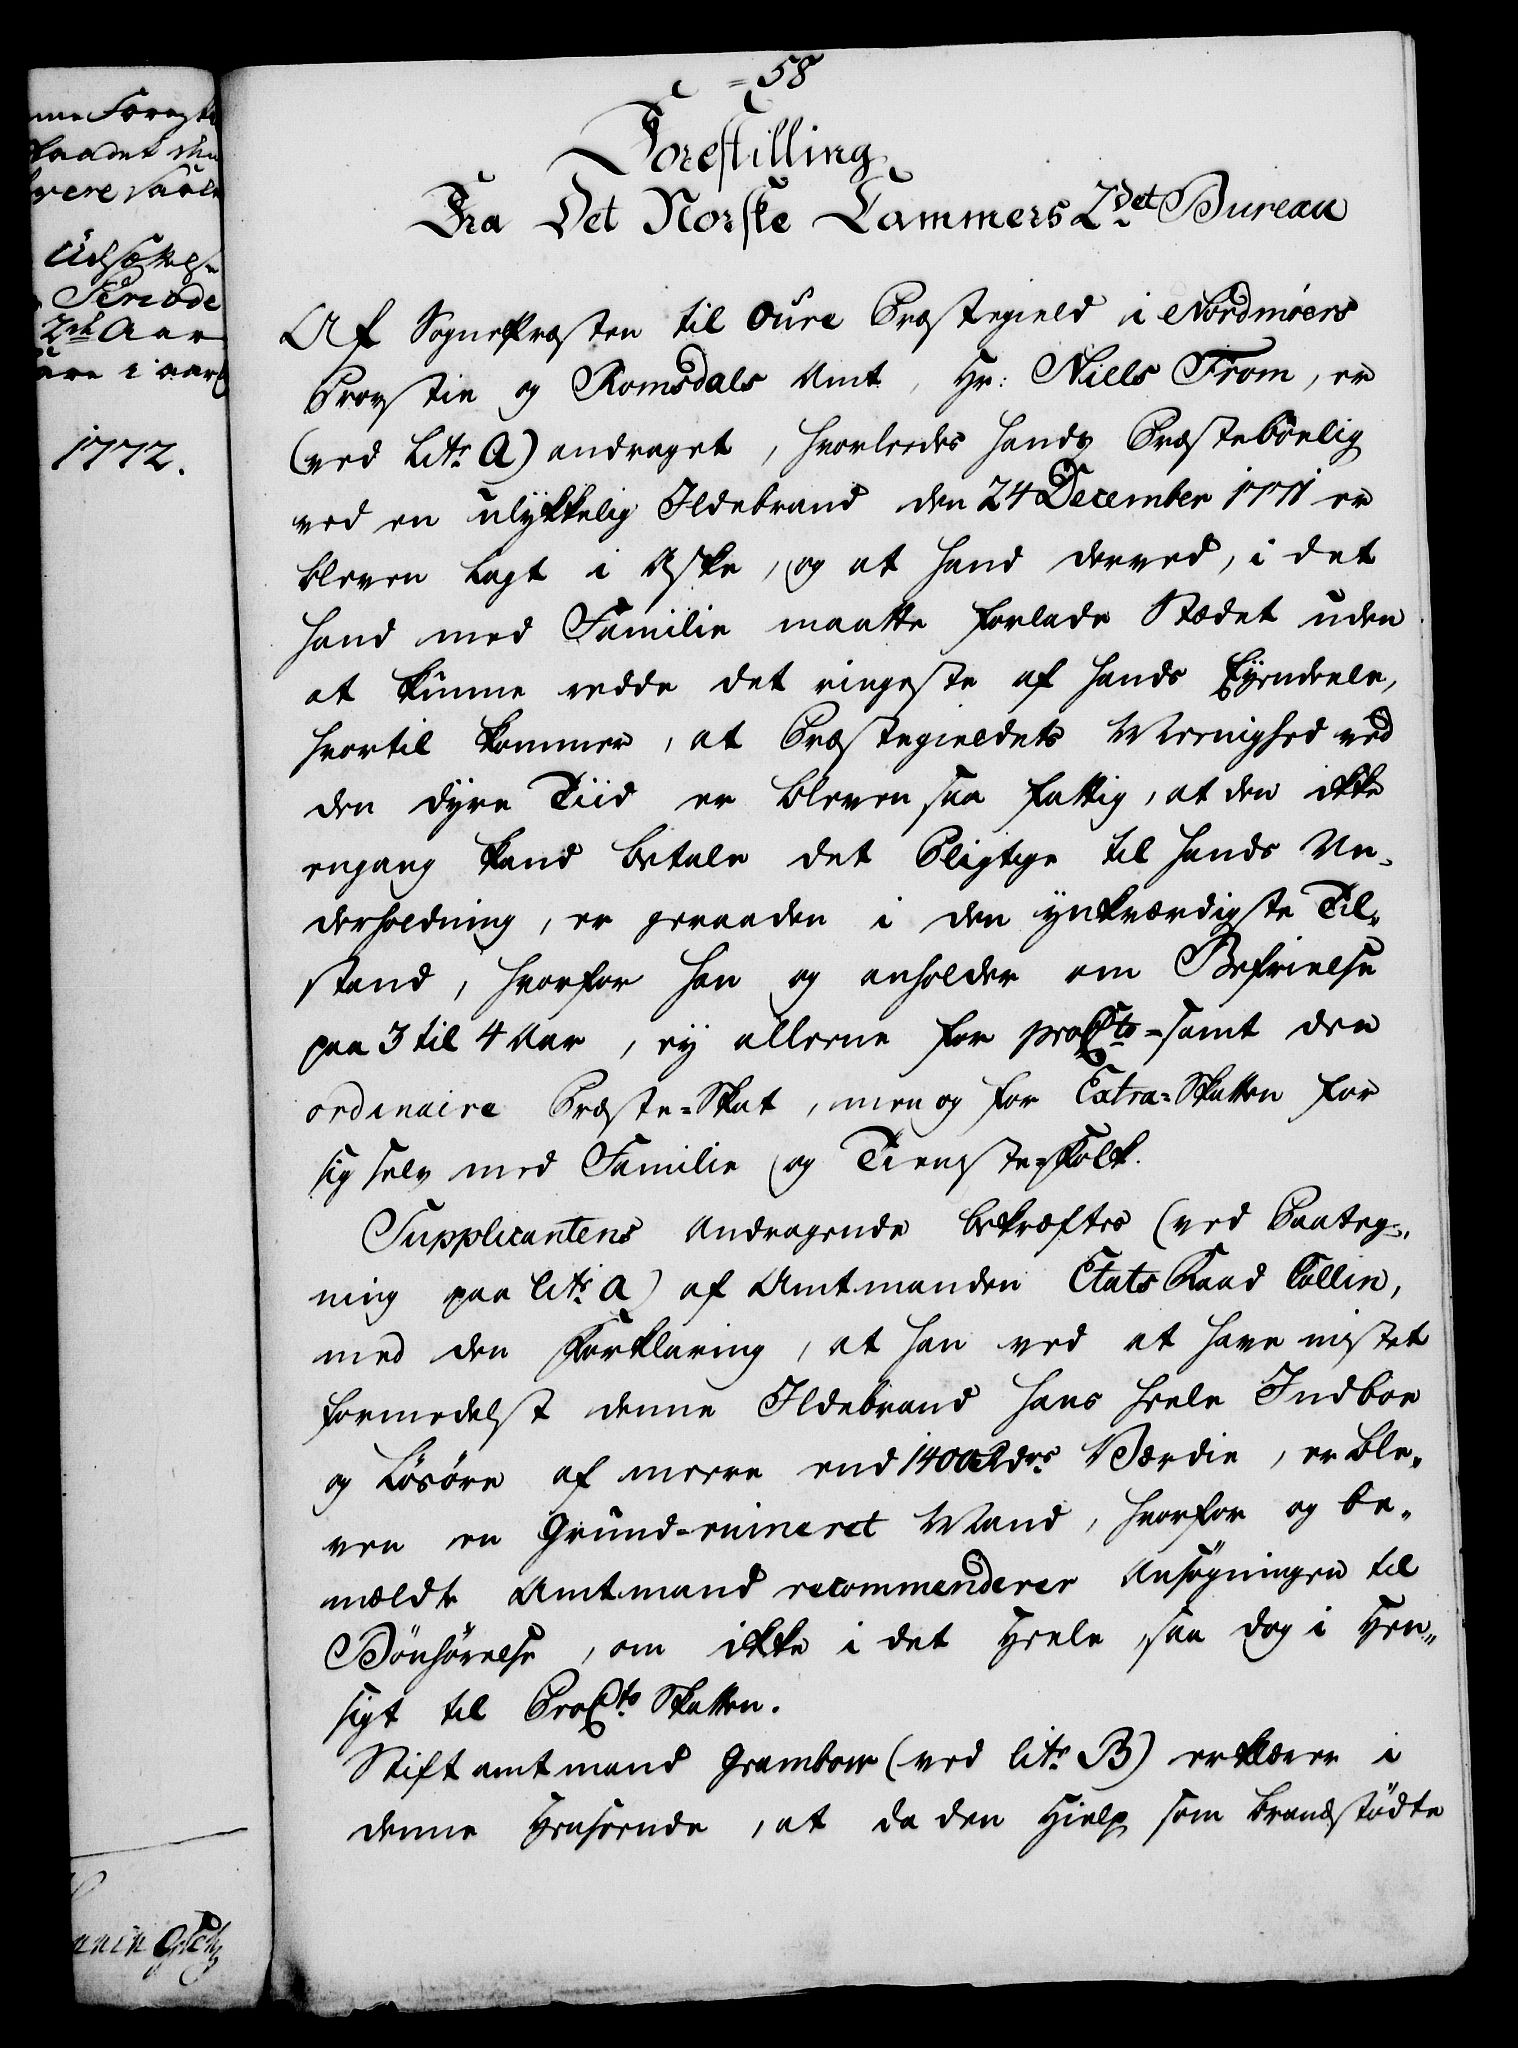 = 58
Forestilling
Fra Det Norske Cammers 2det Bureau
Af Sognepræsten til Oure Præstegield i Nordmøers
Provstie og Romsdals Amt, Hr: Niells From, er
(ved Litr A) andraget, hvorledes hands Præstebönlig
ved en ulykkelig Ildebrand den 24 December 1771 er
bleven lagt i Aske, og at hand derved, i det
hand med Familie maatte forlade Stædet uden
at kunne redde det ringeste af hands Eyendeele,
hvortil kommer, at Præstegieldets Meenighed ved
den dyre Tiid er bleven saa fattig, at den ikke
engang kand betale det Pligtige til hands Un-
derholdning, er geraaden i den ynkværdigste Til-
stand, hvorfor han og anholder om Befrielse
paa 3 til 4 Aar, ey alleene for proCto-samt den
ordinaire Præste-Skat, men og for Extra-Skatten for
sig selv med Familie og Tieneste-Folk.
Supplicantens Andragende bekræftes (ved Paateg-
ning paa litr a) af Amtmanden Etats Raad Collin,
med den Forklaring, at han ved at have mistet
formedelst denne Ildebrand hans heele Indboe
og Lösöre af meere end 1400 Rdrs Værdie, er ble-
ven en Grund-ruineret Mand, hvorfor og be-
mældte Amtmand recommenderer Ansøgningen til
Bönhörelse, om ikke i det Heele, saa dog i Hen-
sigt til ProCto Skatten.
Stiftamtmand Grambow (ved litr B) erklærer i
denne Henseende, at da den Hielp som brandstödte
1772.
Periode
2de Aar